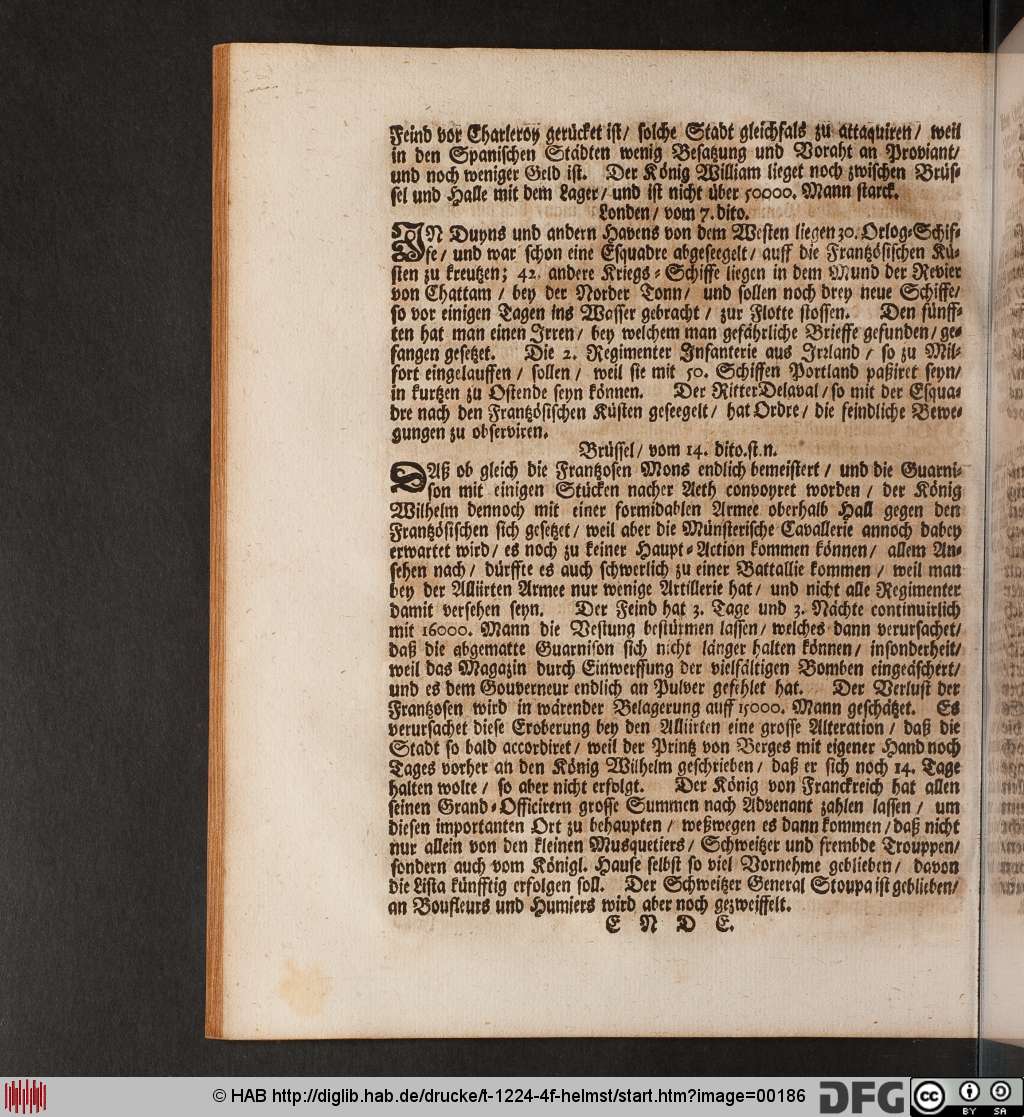 Feind vor Charleroy gerücket ist/ solche Stadt gleichfals zu attaquiren/ weil
in den Spanischen Städten wenig Besatzung und Voraht an Proviant/
und noch weniger Geld ist. Der König William lieget noch zwischen Brüs-
sel und Halle mit dem Lager/ und ist nicht über 50000. Mann starck.
Londen/ vom 7. dito.
IN Duyns und andern Havens von dem Westen liegen 30. Orlog-Schif-
fe/ und war schon eine Esquadre abgeseegelt/ auff die Frantzösischen Kü-
sten zu kreutzen; 42. andere Kriegs-Schiffe liegen in dem Mund der Revier
von Chattam / bey der Norder Tonn/ und sollen noch drey neue Schiffe/
so vor einigen Tagen ins Wasser gebracht / zur Flotte stossen. Den fünff-
ten hat man einen Irren/ bey welchem man gefährliche Brieffe gefunden/ ge-
fangen gesetzet. Die 2. Regimenter Infanterie aus Irrland / so zu Mil-
fort eingelauffen / sollen / weil sie mit 50. Schiffen Portland paßiret seyn/
in kurtzen zu Ostende seyn können. Der Ritter Delaval/ so mit der Esqua-
dre nach den Frantzösischen Küsten geseegelt/ hat Ordre/ die feindliche Bewe-
gungen zu observiren.
Brüssel/ vom 14. dito. st. n.
DAß ob gleich die Frantzosen Mons endlich bemeistert/ und die Guarni-
son mit einigen Stücken nacher Aeth convoyret worden / der König
Wilhelm dennoch mit einer formidablen Armee oberhalb Hall gegen den
Frantzösischen sich gesetzet/ weil aber die Münsterische Cavallerie annoch dabey
erwartet wird/ es noch zu keiner Haupt-Action kommen können/ allem An-
sehen nach/ dürffte es auch schwerlich zu einer Battallie kommen / weil man
bey der Alliirten Armee nur wenige Artillerie hat/ und nicht alle Regimenter
damit versehen seyn. Der Feind hat 3. Tage und 3. Nächte continuirlich
mit 16000. Mann die Vestung bestürmen lassen/ welches dann verursachet/
daß die abgematte Guarnison sich nicht länger halten können/ insonderheit/
weil das Magazin durch Einwerffung der vielfältigen Bomben eingeäschert/
und es dem Gouverneur endlich an Pulver gefehlet hat. Der Verlust der
Frantzosen wird in wärender Belagerung auff 15000. Mann geschätzet. Es
verursachet diese Eroberung bey den Alliirten eine grosse Alteration / daß die
Stadt so bald accordiret/ weil der Printz von Berges mit eigener Hand noch
Tages vorher an den König Wilhelm geschrieben/ daß er sich noch 14. Tage
halten wolte / so aber nicht erfolgt. Der König von Franckreich hat allen
seinen Grand-Officirern grosse Summen nach Advenant zahlen lassen / um
diesen importanten Ort zu behaupten / weßwegen es dann kommen/ daß nicht
nur allein von den kleinen Musquetiers/ Schweitzer und frembde Trouppen/
sondern auch vom Königl. Hause selbst so viel Vornehme geblieben/ davon
die Lista künfftig erfolgen soll. Der Schweitzer General Stoupa ist geblieben/
an Boufleurs und Humiers wird aber noch gezweiffelt.
E N D E.
© HAB http://diglib.hab.de/drucke/t-1224-4f-helmst/start.htm?image=00186
DFG
cc BY SA